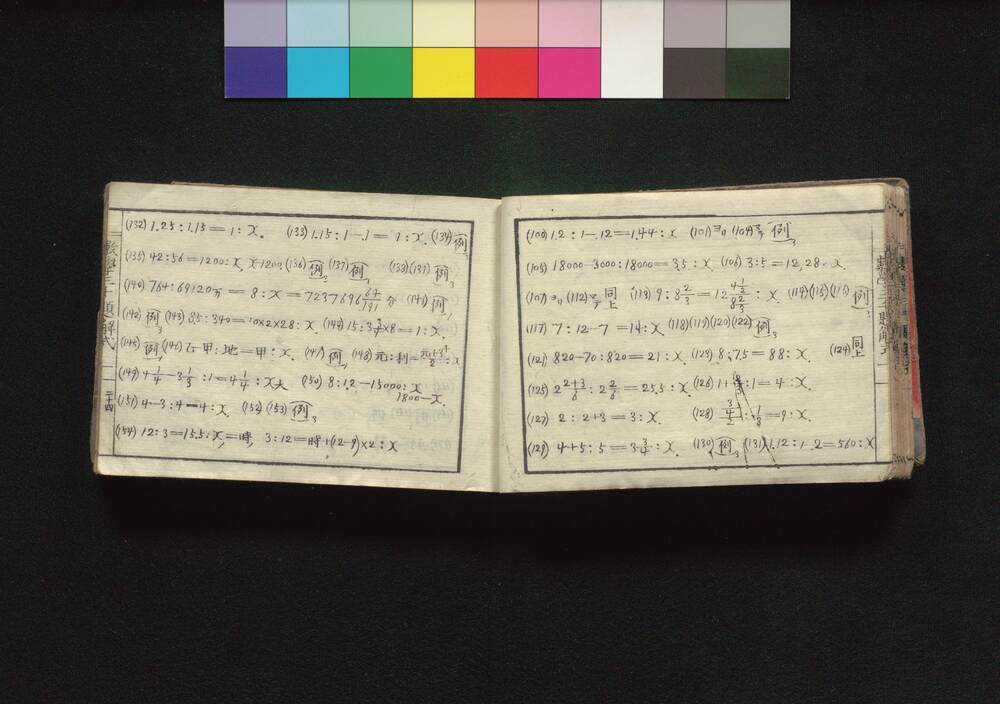 (100) 1.2 : 1-.12 = 1.44 : x (101) ヨリ (104) マデ 例3
(105) 18000-3000 : 18000 = 35 : x. (106) 3 : 5 = 12,28 - x.
(107) ヨリ (112) マデ 同上 (113) 9 : 8 2/3 = 12 4 1/2 / 8 2/3 : x. (114)(115)(116) 例3
(117) 7 : 12-7 = 14 : x (118)(119)(120)(122) 例3
(121) 820-70 : 820 = 21 : x. (123) 8 : 7.5 = 88 : x. (124) 同上
(125) 2 2+3/6 : 2 2/6 = 25.5 : x. (126) : 1 = 4 : x.
(127) 2 : 2+3 = 3 : x. (128) = 9 : x.
(129) 4+5 : 5 = 3 3/4 : x. (130) 例3 (131) 1.12 : 1-.2 = 560 : x
(132) 1.25 : 1.15 = 1 : x. (133) 1.15 : 1-.1 = 1 : x. (134) 例3
(135) 42 : 56 = 1200 : x, x-1200 (136) 例3 (137) 例1 (138)(139) 例3
(140) 764 : 69120万 = 8 : x = 7237696 64/191 分 (141) 例1
(142) 例3 (143) 85 : 340 = 10×2×28 : x. (144) ×8 = 1 : x.
(145) 例1 (146) 乙-甲 : 地 = 甲 : x. (147) 例1 (148) 元 : 利 = : x
(149) 4 1/4 - 3 1/3 : 1 = 4 1/4 : x大 (150) 8 : 1.2 - 15000 : x
1800-x.
(151) 4-3 : 4 = 4 : x. (152) (153) 例3
(154) 12 : 3 = 15.5 : x, = 時, 3 : 12 = 時+(12-9)×2 : x
數學三千題解式
二十四